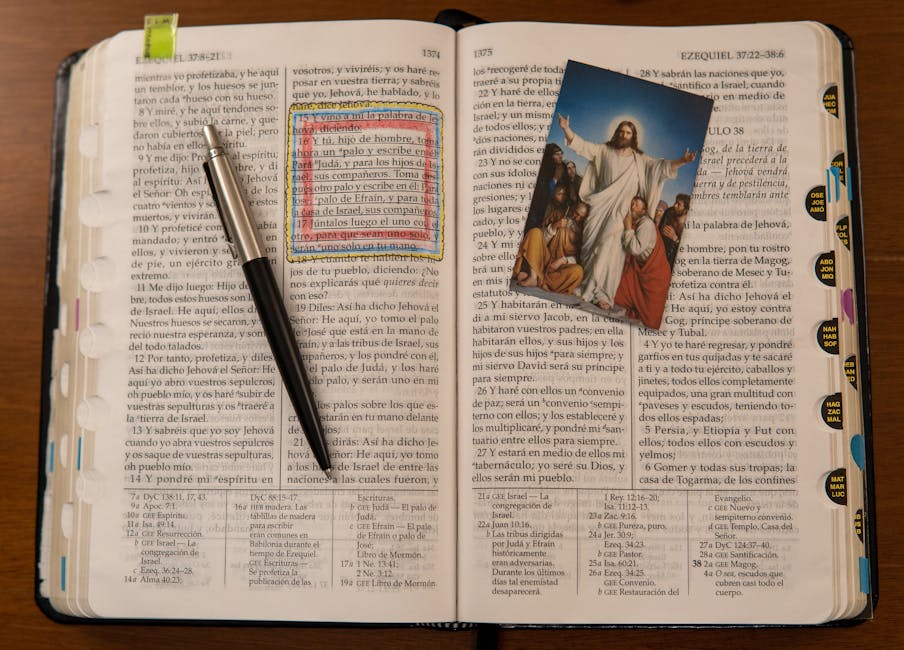 EZEQUIEL 37:8–21
1374
mientras yo profetizaba, y he aquí
un temblor, y los huesos se jun-
taron cada hueso con su hueso.
8 Y miré, y he aquí tendones so-
bre ellos, y subió la carne, y que-
daron cubiertos por la piel; pero
no había en ellos espíritu.
9 Y me dijo: Profetiza al espíritu;
profetiza, hijo de hombre, y di
al espíritu: Así ha dicho Jehová el
Señor: Oh espíritu, ven de los
cuatro vientos y so
muertos, y vivirán.
10 Y profeticé como
mandado; y entró
en ellos, y vivieron y
de pie, un ejército gran
extremo.
11 Me dijo luego: Hijo de
bre, todos estos huesos son l
de Israel. He aquí, ellos di
Nuestros huesos se secaron, y
reció nuestra esperanza, y som
del todo talados.
12 Por tanto, profetiza, y diles:
Así ha dicho Jehová el Señor: He
aquí yo abro vuestros sepulcros,
oh pueblo mío, y os haré subir de
vuestras sepulturas y os traeré a
la tierra de Israel.
13 Y sabréis que yo soy Jehová
cuando yo abra vuestros sepulcros
y os saque de vuestras sepulturas,
oh pueblo mío.
14 Y pondré mi espíritu en
vosotros, y viviréis, y os haré re-
posar en vuestra tierra; y sabréis
que yo, Jehová, he hablado, y lo
haré, dice Jehová.
15 Y vino a mí la palabra de Je-
hová, diciendo:
16 Y tú, hijo de hombre, toma
ahora un palo y escribe en él:
Para Judá, y para los hijos de Is-
rael, sus compañeros. Toma des-
pués otro palo y escribe en él: Para
José, palo de Efraín, y para toda
la casa de Israel, sus compañeros.
17 Júntalos luego el uno con el
otro, para que sean uno solo, y
serán uno solo en tu mano.
18 Y cuando te hablen los hi-
jos de tu pueblo, diciendo: ¿No
nos explicarás qué quieres decir
con eso?
19 Diles: Así ha dicho Jehová el
Señor: He aquí, yo tomo el palo
de José que está en la mano de
Efraín, y a las tribus de Israel, sus
compañeros, y los pondré con él,
el palo de Judá, y los haré
solo palo, y serán uno en mi
los palos sobre los que es-
estarán en tu mano delante
de
21 dirás: Así ha dicho Je-
hová el Señor: He
a los hijos de Israel de entre las
naciones a las cuales fueron, y
7a DyC 138:11, 17, 43.
9a Apoc. 7:1.
10a GEE Espíritu.
11a Isa. 49:14.
12a GEE Resurrección.
13a
b GEE Israel — La
congregación de
Israel.
c Ezeq. 36:24–28.
14a Alma 40:23;
DyC 88:15–17.
16a HEB madera. Las
tablillas de madera
para escribir
eran comunes en
Babilonia durante el
tiempo de Ezequiel.
GEE Escrituras —
Se profetiza la
publicación de las
Escrituras.
b GEE Judá — El palo de
Judá.
c GEE Efraín — El palo
de Efraín o palo de
José;
Libro de Mormón.
17a 1 Ne. 13:41;
2 Ne. 3:12.
19a GEE Libro de Mormón.
1375
EZEQUIEL 37:22–38:6
los recogeré de toda
traeré a su propia ti
22 Y haré de ellos
ción en la tierra, en
Israel; y un mismo
de todos ellos; y
dos naciones, ni
rán divididos en
23 Y no se con
con sus ídolos
naciones ni c
gresiones; y l
los lugares e
cado, y los
mí por pue
ellos por
24 Y mi s
sobre ello
brá un s
en mis p
estatutos y
25 Y
di a mi siervo Jacob, en la cu
habitaron vuestros padres; en ella
habitarán ellos, y sus hijos y los
hijos de sus hijos para siempre; y
mi siervo David será su príncipe
para siempre.
26 Y haré con ellos un convenio
de paz; será un convenio sempi-
terno con ellos; y los estableceré y
los multiplicaré, y pondré mi san-
tuario entre ellos para siempre.
27 Y estará en medio de ellos mi
tabernáculo; yo seré su Dios, y
ellos serán mi pueblo.
28 Y sabrán las naciones que yo,
santifico a Israel, cuando
en medio de
ULO 38
Gog, de la tierra de
Israel precederá a la
da — Jehová vendrá
uerra y de pestilencia,
mbres temblarán ante
a mí la palabra de Jehová,
hombre, pon tu rostro
og en la tierra de Magog,
soberano de Mesec y Tu-
profetiza contra él.
Así ha dicho Jehová el
Señor: He aquí, yo estoy contra
Gog, príncipe soberano de
Mesec y Tubal.
4 Y yo te haré regresar, y pondré
garfios en tus quijadas y te sacaré
a ti y a todo tu ejército, caballos y
jinetes, todos ellos completamente
equipados, una gran multitud con
paveses y escudos, teniendo to-
dos ellos espadas;
5 Persia, y Etiopía y Fut con
ellos; todos ellos con escudos y
yelmos;
6 Gomer y todas sus tropas; la
casa de Togarma, de los confines
21a GEE Israel — La
congregación de
Israel.
22a Juan 10:16.
b Las tribus dirigidas
por Judá y Efraín
históricamente
eran adversarias.
Durante los últimos
días tal enemistad
desaparecerá.
1 Rey. 12:16–20;
Isa. 11:12–13.
23a Zac. 9:16.
b GEE Pureza, puro.
24a Jer. 30:9;
Ezeq. 34:23.
b GEE Pastor.
25a Isa. 60:21.
26a Ezeq. 34:25.
GEE Convenio.
b GEE Restauración del
Evangelio.
c GEE Nuevo y
sempiterno convenio.
d GEE Templo, Casa del
Señor.
27a DyC 124:37–40.
28a GEE Santificación.
38 2a GEE Magog.
4a O sea, escudos que
cubren casi todo el
cuerpo.
OSE
JOE
AMÓ
ABD
JON
MIQ
NAH
HAB
SOF
HAG
ZAC
MAL
MAT
MAR
LUC